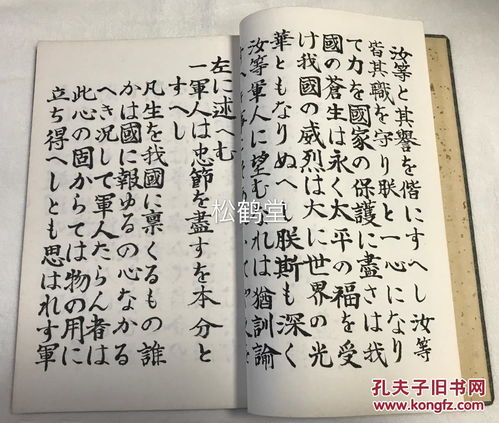 汝等と其譽を偕にすへし汝等
皆其職を守り朕と一心になり
て力を國家の保護に盡さは我
國の蒼生は永く太平の福を受
け我國の威烈は大に世界の光
華ともなりぬへし朕斯も深く
汝等軍人に望むなれは猶訓諭
左に述へむ
一軍人は忠節を盡すを本分と
すへし
凡生を我國に稟くるもの誰
かは國に報ゆるの心なかる
へき況して軍人たらん者は
此心の固からては物の用に
立ち得へしとも思はれす軍
松鹤堂
孔夫子旧书网
www.kongfz.com